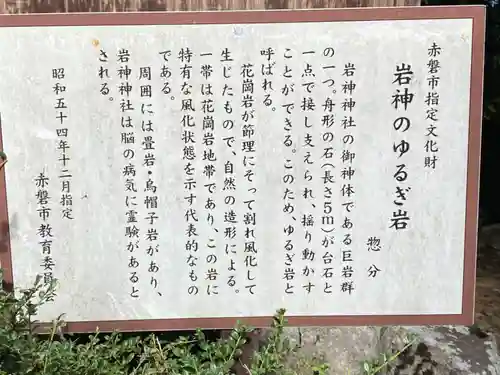 赤磐市指定文化財
岩神のゆるぎ岩
惣分
岩神神社の御神体である巨岩群
の一つ。舟形の石(長さ5m)が台石と
一点で接し支えられ、揺り動かす
ことができる。このため、ゆるぎ岩と
呼ばれる。
花崗岩が節理にそって割れ風化して
生じたもので、自然の造形による。
一帯は花崗岩地帯であり、この岩に
特有な風化状態を示す代表的なもの
である。
周囲には畳岩・烏帽子岩があり、
岩神神社は脳の病気に霊験があると
される。
昭和五十四年十二月指定
赤磐市教育委員会